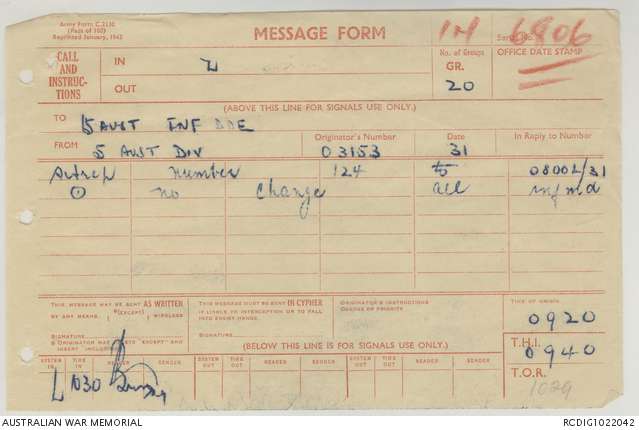 Army Form C.2130
(Pads of 100)
Reprinted January, 1942
MESSAGE FORM
IH 6906
Serial No.
CALL AND INSTRUC-TIONS
IN
OUT
No. of Groups
GR.
20
OFFICE DATE STAMP
(ABOVE THIS LINE FOR SIGNALS USE ONLY.)
TO 15 AUST INF BDE
FROM 5 AUST DIV
Originator's Number 03153
Date 31
In Reply to Number
Sitrep number 124 to 0800L/31
⊙ no change all infmd
THIS MESSAGE MAY BE SENT AS WRITTEN
BY ANY MEANS. (EXCEPT) WIRELESS
SIGNATURE
THIS MESSAGE MUST BE SENT IN CYPHER
IF LIABLE TO INTERCEPTION OR TO FALL INTO ENEMY HANDS.
SIGNATURE
ORIGINATOR'S INSTRUCTIONS
DEGREE OF PRIORITY
TIME OF ORIGIN
0920
(BELOW THIS LINE IS FOR SIGNALS USE ONLY.)
T.H.I.
0940
SYSTEM IN TIME IN READER SENDER SYSTEM OUT TIME OUT READER SENDER SYSTEM OUT TIME OUT READER SENDER
T.O.R.
1029
L 1030
AUSTRALIAN WAR MEMORIAL
RCDIG1022042